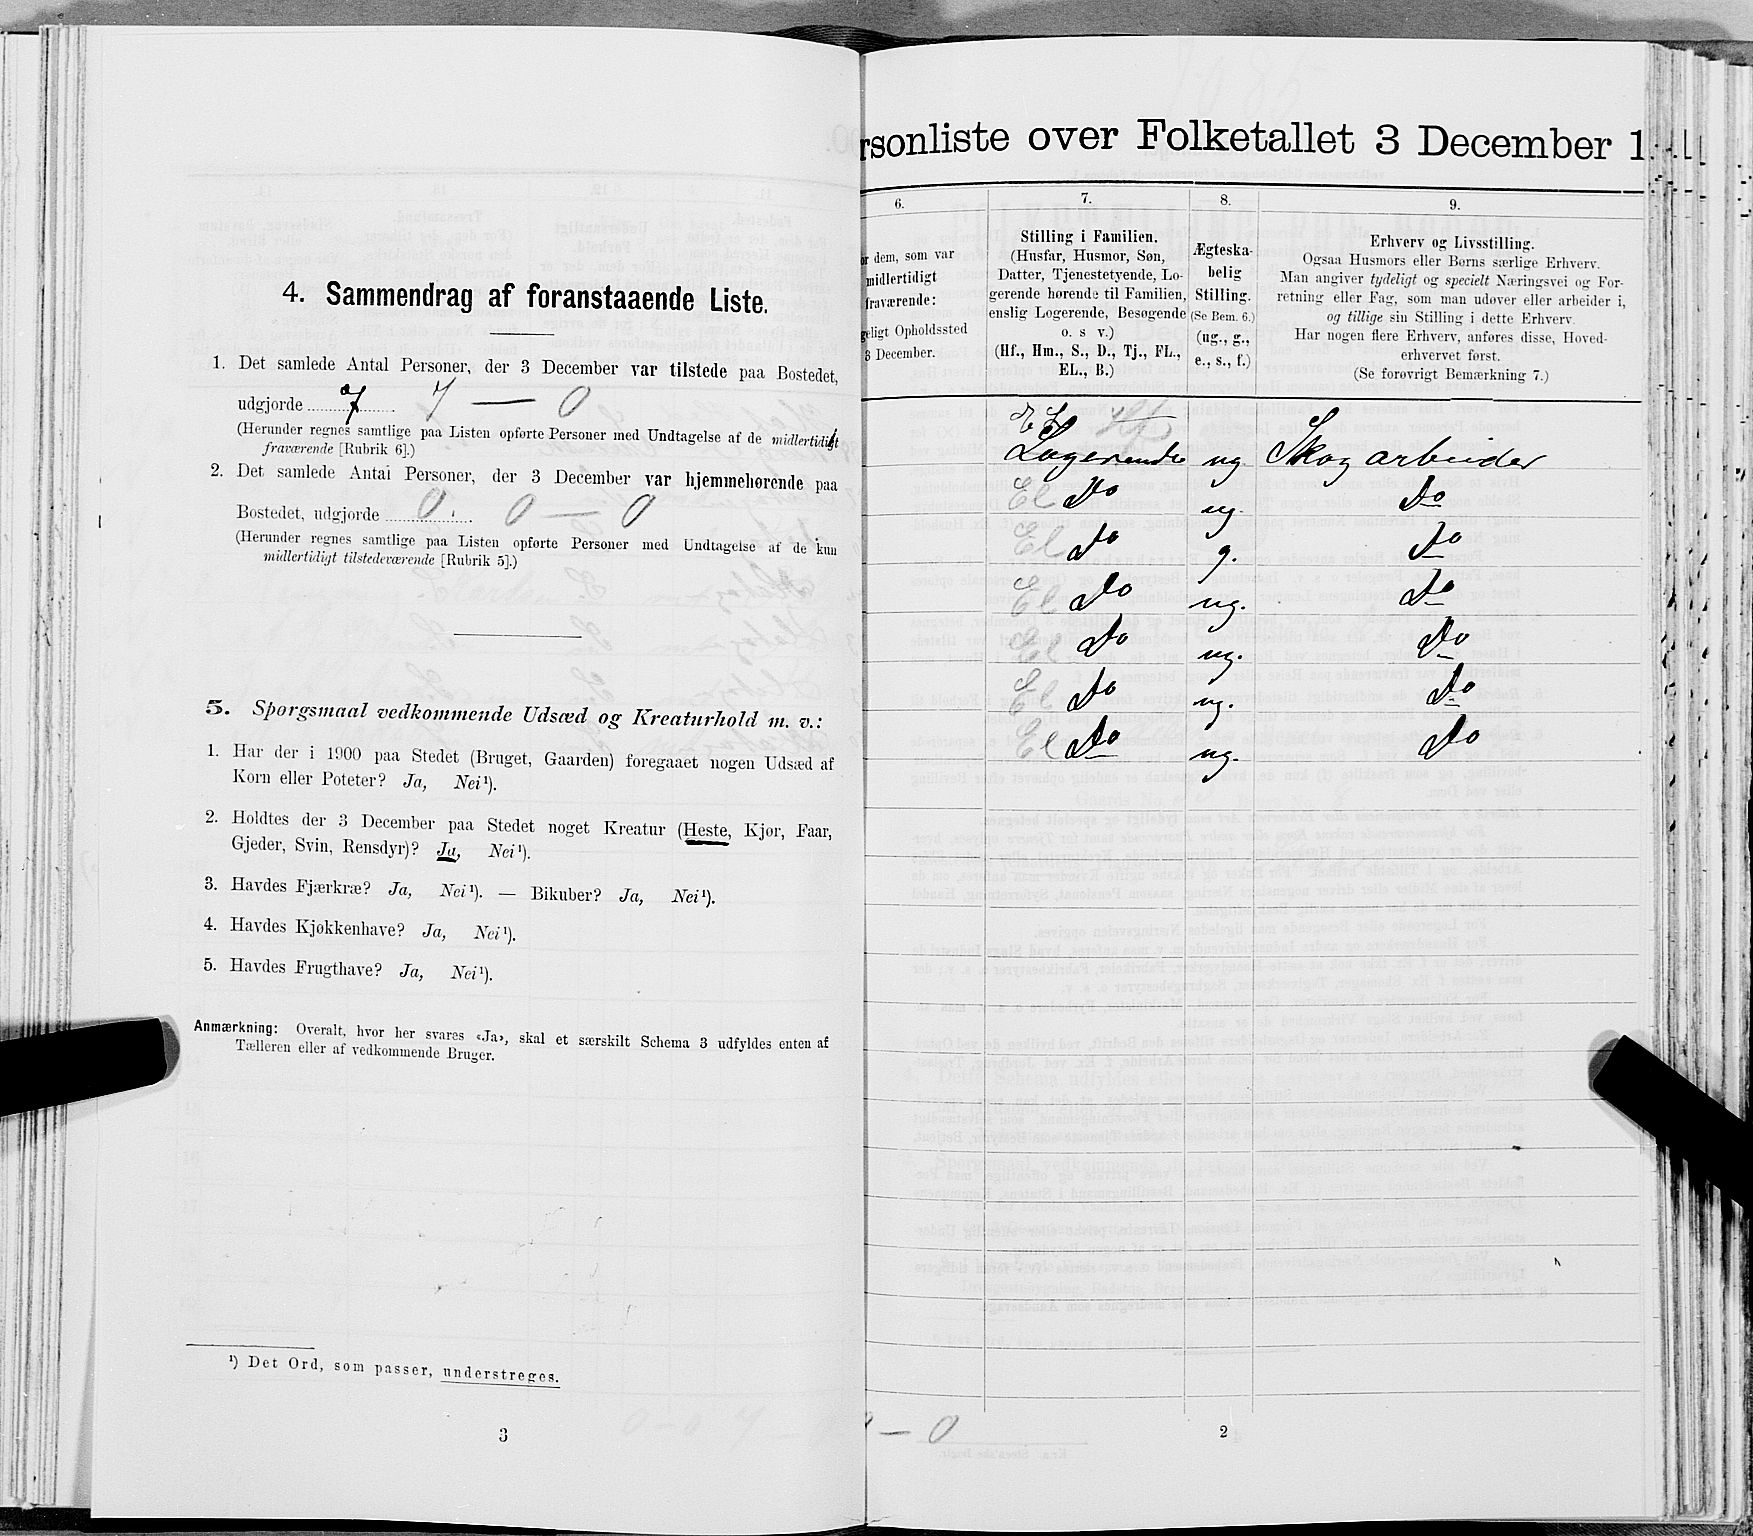 4. Sammendrag af foranstaaende Liste.
1. Det samlede Antal Personer, der 3 December var tilstede paa Bostedet,
udgjorde 7 7 — 0
(Herunder regnes samtlige paa Listen opførte Personer med Undtagelse af de midlertidigt
fraværende [Rubrik 6].)
2. Det samlede Antal Personer, der 3 December var hjemmehørende paa
Bostedet, udgjorde 0. 0 — 0
(Herunder regnes samtlige paa Listen opførte Personer med Undtagelse af de kun
midlertidigt tilstedeværende [Rubrik 5].)
5. Spørgsmaal vedkommende Udsæd og Kreaturhold m. v.:
1. Har der i 1900 paa Stedet (Bruget, Gaarden) foregaaet nogen Udsæd af
Korn eller Poteter? Ja, Nei¹).
2. Holdtes der 3 December paa Stedet noget Kreatur (Heste, Kjør, Faar,
Gjeder, Svin, Rensdyr)? Ja, Nei¹).
3. Havdes Fjærkræ? Ja, Nei¹). — Bikuber? Ja, Nei¹).
4. Havdes Kjøkkenhave? Ja, Nei¹).
5. Havdes Frugthave? Ja, Nei¹).
Anmærkning: Overalt, hvor her svares «Ja», skal et særskilt Schema 3 udfyldes enten af
Tælleren eller af vedkommende Bruger.
¹) Det Ord, som passer, understreges.
3
rsonliste over Folketallet 3 December 1
6.
or dem, som var
midlertidigt
fraværende:
geligt Opholdssted
3 December.
7.
Stilling i Familien.
(Husfar, Husmor, Søn,
Datter, Tjenestetyende, Lo-
gerende hørende til Familien,
enslig Logerende, Besøgende
o. s v.)
(Hf., Hm., S., D., Tj., FL.,
EL., B.)
8.
Ægteska-
belig
Stilling.
(Se Bem. 6.)
(ug., g.,
e., s., f.)
9.
Erhverv og Livsstilling.
Ogsaa Husmors eller Børns særlige Erhverv.
Man angiver tydeligt og specielt Næringsvei og For-
retning eller Fag, som man udøver eller arbeider i,
og tillige sin Stilling i dette Erhverv.
Har nogen flere Erhverv, anføres disse, Hoved-
erhvervet først.
(Se forøvrigt Bemærkning 7.)
El
Logerende ug Skogarbeider
El Do ug. Do
El Do g. Do
El Do ug. Do
El Do ug. Do
El Do ug. Do
El Do ug. Do
— 0
2